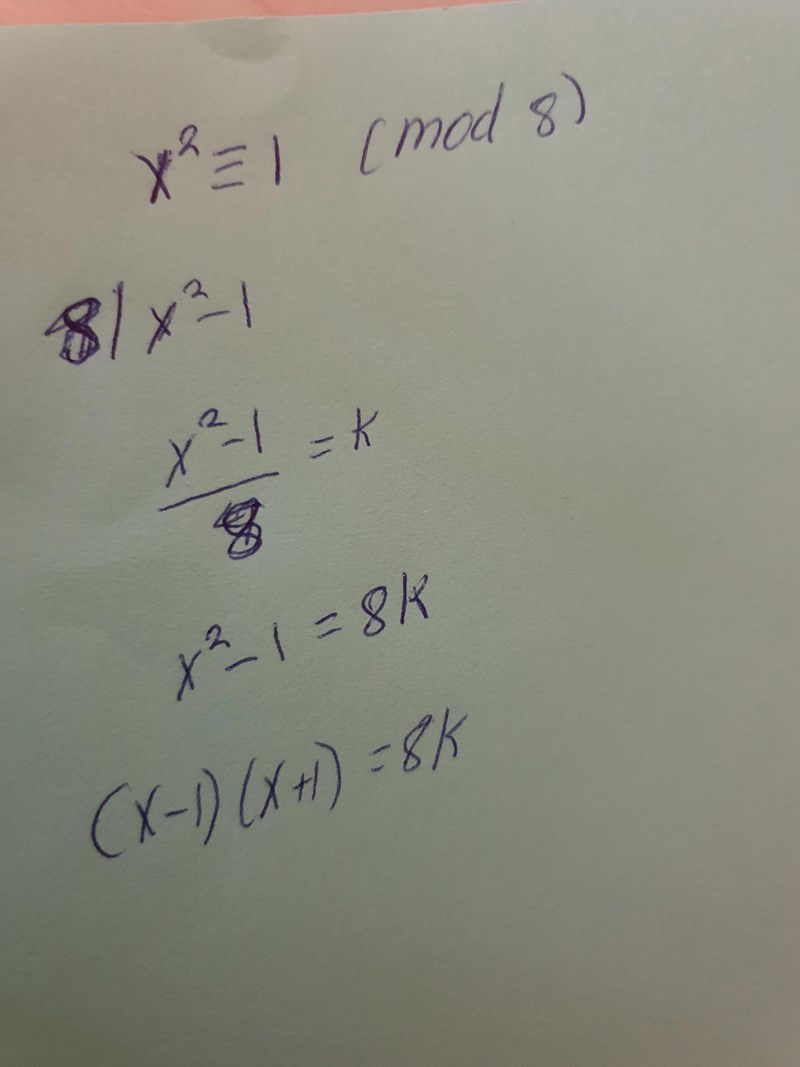 x² ≡ 1 (mod 8)
8 | x² - 1
x² - 1
8
= k
x² - 1 = 8k
(x-1)(x+1) = 8k